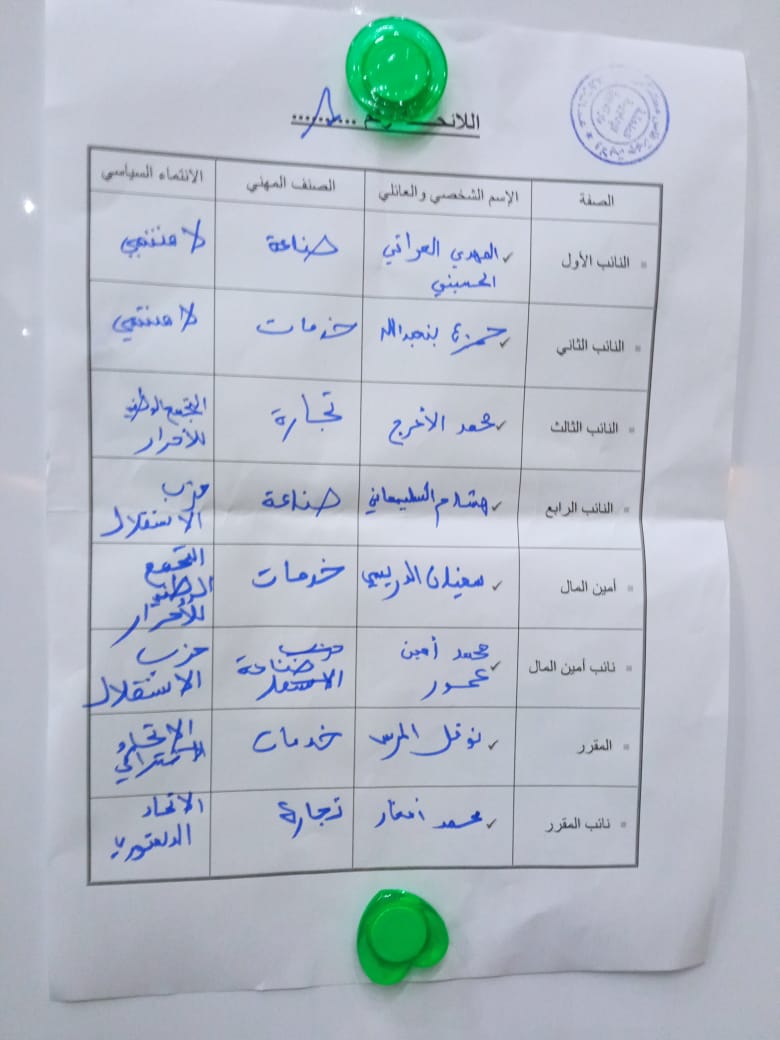 اللائحة رقم ..........
الصفة الإسم الشخصي والعائلي الصنف المهني الانتماء السياسي
النائب الأول المهدي العراقي الحسيني صناعة لا منتمي
النائب الثاني حمزة بنعبدالله خدمات لا منتمي
النائب الثالث محمد الأعرج تجارة التجمع الوطني للأحرار
النائب الرابع هشام السليماني صناعة حزب الاستقلال
أمين المال سفيان الدريسي خدمات التجمع الوطني للأحرار
نائب أمين المال محمد أمين صناعة حزب الاستقلال
المقرر نوفل خدمات الاتحاد الاشتراكي
نائب المقرر محمد تجارة الاتحاد الدستوري